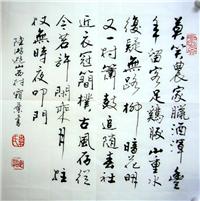 莫笑農家臘酒渾豐
年留客足鷄豚山重水
復疑無路柳暗花明
又一村簫鼓追隨春社
近衣冠簡樸古風存從
今若許閑乘月拄
杖無時夜叩門
陸游遊山西村 書